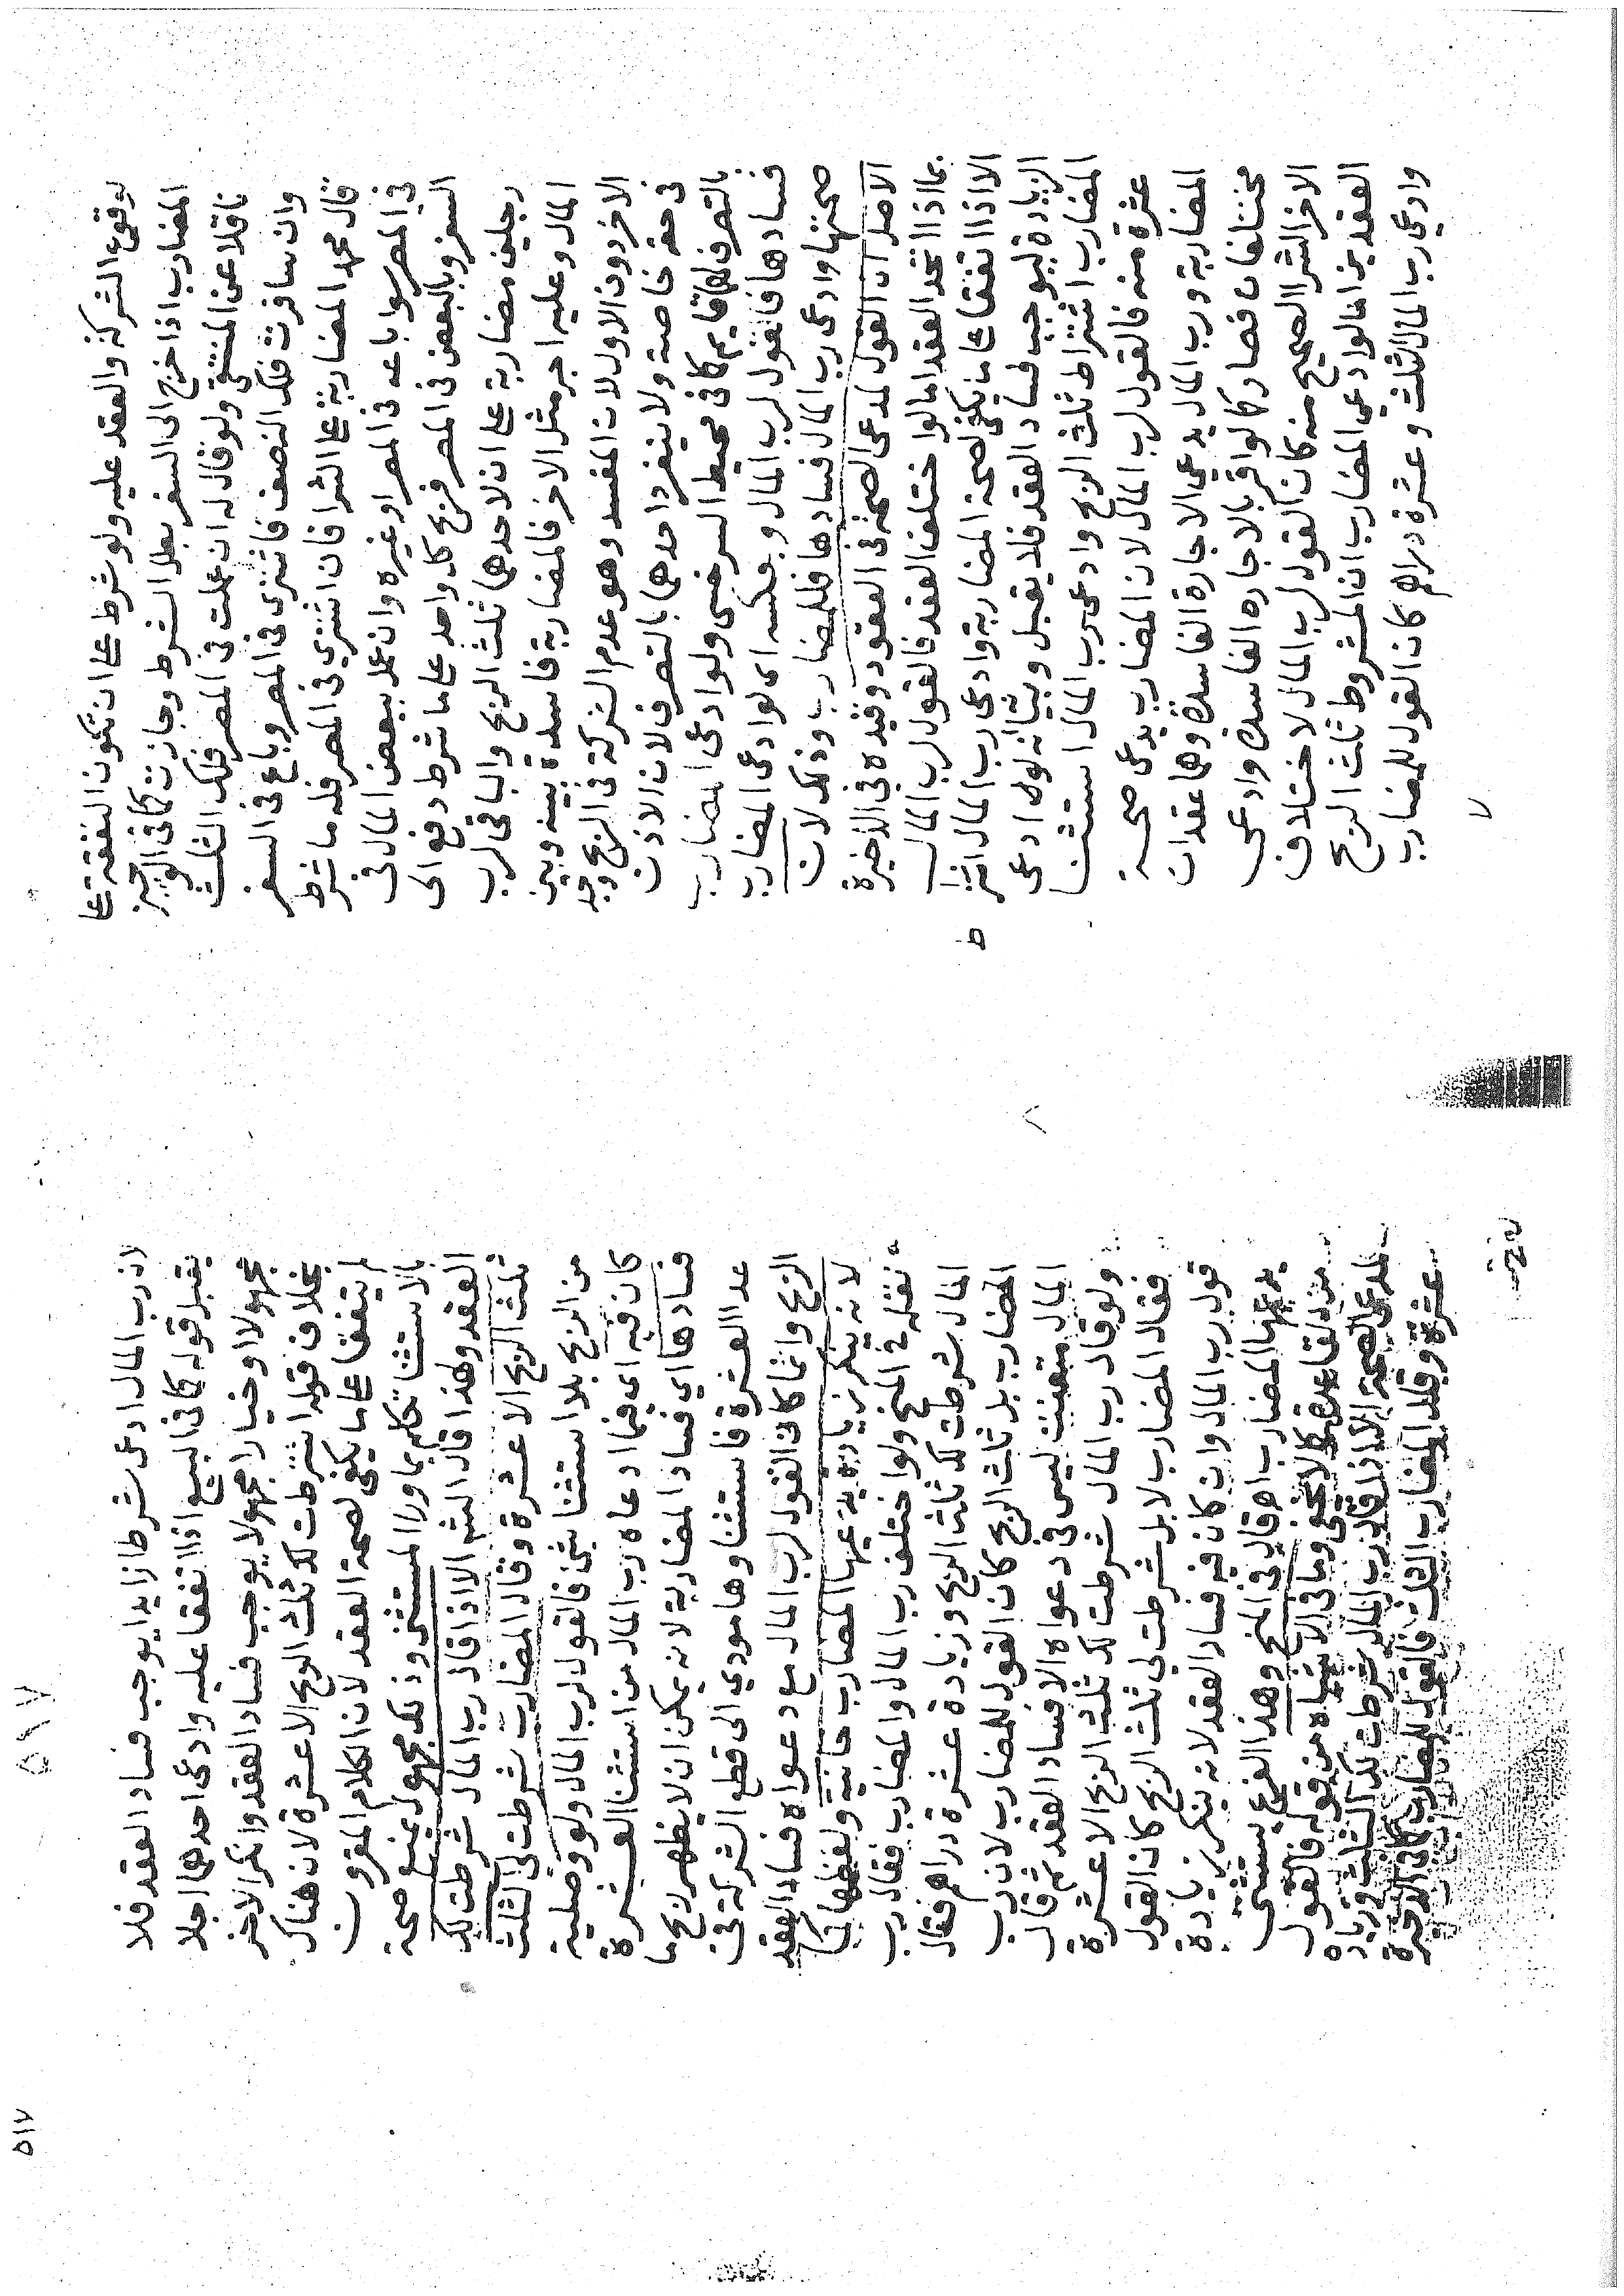 لوقوع الشركة والعقد عليه ولو شرط على ان تكون النفقة على
المضارب اذا خرج الى السفر بطل الشرط وجازت كما في الوجيز
ناقلا عن المنتقى ولو قال له ان عملت في المصر فلك الثلث
وان سافرت فلك النصف فاشترى في المصر وباع في السفر
قال محمد المضاربة على الشرا فان اشترى في المصر فله ما شرط
في المصر سوا باعه في المصر او غيره وان عمل ببعض المال في
السفر وبالبعض في المصر فربح كل واحد على ما شرط دفع الى
رجلين مضاربة على ان لاحدهما ثلث الربح والباقي لرب
المال وعليه اجر مثل الاخر فالمضاربة فاسدة بينه وبين
الاخر دون الاول لان المفسد وهو عدم الشركة في الربح وجد
في حقه خاصة ولا ينفرد احدهما بالتصرف لان الاذن
بالتصرف لهما قايم كما في محيط السرخسي ولو ادعى المضارب
فسادها فالقول لرب المال وبعكسه اى لو ادعى المضارب
صحتها وادعى رب المال فسادها فللمضارب وذلك لان
الاصل ان القول لمدعى الصحة في العقود وقيده في الذخيرة
بما اذا اتحد العقد اما لو اختلف العقد فالقول لرب المال
الا اذا اتفقا على ما يكفي لصحة المضاربة وادعى رب المال اشترا
ط
الزيادة ليوجب فساد العقد فلا يقبل وبيانه لو ادعى
المضارب اشتراط ثلث الربح وادعى رب المال استثنا
عشرة منه فالقول لرب المال لان المضارب يدعى صحة
المضاربة ورب المال يدعي الاجارة الفاسدة وهما عقدان
مختلفان فصار كما لو اقر بالاجاره الفاسدة وادعى
الاخر الشرا الصحيح منه كان القول لرب المال لاختلاف
العقدين اما لو ادعي المضارب ان المشروط ثلث الربح
وادعي رب المال الثلث وعشرة دراهم كان القول للمضارب
لا
٥١٧
٥١٧
لان رب المال ادعى شرطا زايدا يوجب فساد العقد فلا
يقبل قوله كما في البيع اذا اتفقا عليه وادعى احدهما اجلا
مجهولا او خيارا مجهولا يوجب فساد العقد وانكر الاخر
بخلاف قوله اشترطت لك ثلث الربح الا عشرة لان هناك
لم يتفقا على ما يكفي لصحة العقد لان الكلام المقرون
بالاستثنا تكلم بما ورا المستثنى وذلك مجهول يمنع صحة
العقد وهذا قال الثم الا اذا قال رب المال شرطت لك
ثلث الربح الا عشرة وقال المضارب شرطت لي الثلث
من الربح بلا استثنا شي فالقول لرب المال ولو وصلية
كان فيه اى فيما ادعاه رب المال من استثنا العشرة
فسادها اي فساد المضاربة لانه يمكن ان لا يظهر ربح ما
عدا العشرة فاستثناوها مودي الى قطع الشركة في
الربح وانما كان القول لرب المال مع دعواه فساد العقد
لانه ينكر زيادة يدعيها المضارب خانية ولفظها كما
نقله في المنح ولو اختلف رب المال والمضارب فقال رب
المال شرطت لك ثلث الربح وزيادة عشرة دراهم فقال
المضارب بل ثلث الربح كان القول للمضارب لان رب
المال متعنت ليس في دعواه الا فساد العقد ثم قال
ولو قال رب المال شرطت لك ثلث الربح الا عشرة
فقال المضارب لا بل شرطت لي ثلث الربح كان القول
قول رب المال وان كان فيه فساد العقد لانه ينكر زيادة
يدعيها المضارب اهـ قال في المنح وهذا الفرع يستثنى
من القاعدة كما لا يخفي وما في الاشباه من قوله فالقول
لمدعى الصحة الا اذا قال رب المال شرطت لك الثلث وزيادة
عشرة وقال المضارب الثلث فالقول للمضارب كما في الذخيرة